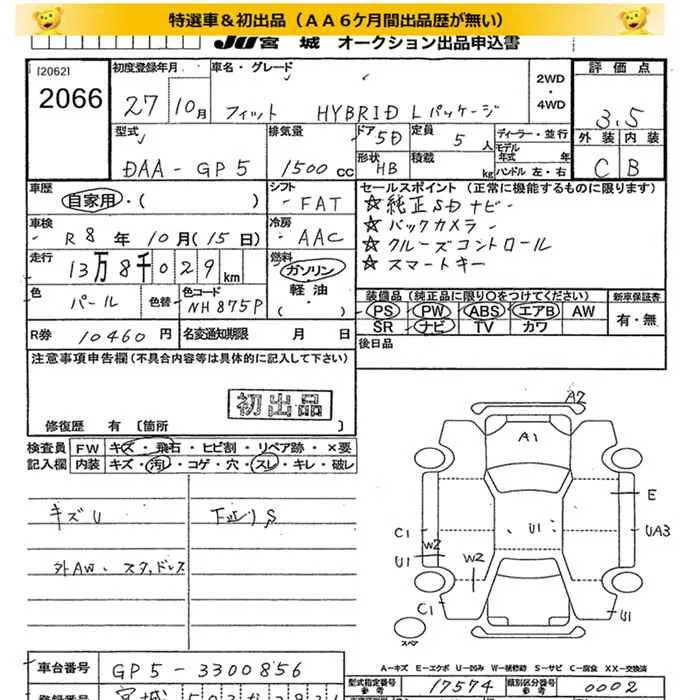 特選車＆初出品（ＡＡ６ケ月間出品歴が無い）
JU宮城 オークション出品申込書
[2062]
2066
初度登録年月
27 10月
車名・グレード
フィット HYBRID Lパッケージ
2WD
・
4WD
評価点
3.5
外装 内装
C B
型式
DAA-GP5
排気量
1500 CC
ドア 5D
定員 5人
形状 HB
積載 kg
ディーラー・並行
モデル年式 年
ハンドル 左・右
車歴
自家用・( )
シフト
FAT
車検
R8年10月(15日)
冷房
AAC
走行
13万8千029km
燃料
ガソリン
軽油
・( )
色
パール
色替
色コード
NH875P
R券 10460円
名変通知期限 月 日
セールスポイント（正常に機能するものに限ります）
☆純正SDナビー
☆バックカメラー
☆クルーズコントロール
☆スマートキー
装備品（純正品に限り○をつけてください）
PS PW ABS エアB AW
SR ナビ TV カワ
新車保証書
有・無
後日品
注意事項申告欄(不具合内容等は具体的に記入して下さい)
初出品
修復歴 有〔箇所
検査員記入欄
FW キズ・飛石・ヒビ割・リペア跡・×要
内装 キズ・汚レ・コゲ・穴・スレ・キレ・破レ
キズU
下廻りS
外AW、スタッドレス
A2
A1
E
C1
U1
UA3
U1
W2
W2
C1
U1
スペア
A－キズ E－エクボ U－凹み W－補修跡 S－サビ C－腐食 XX－交換済
車台番号
GP5-3300856
型式指定番号
参考
17574
類別区分番号
参考
0002
登録番号
宮城